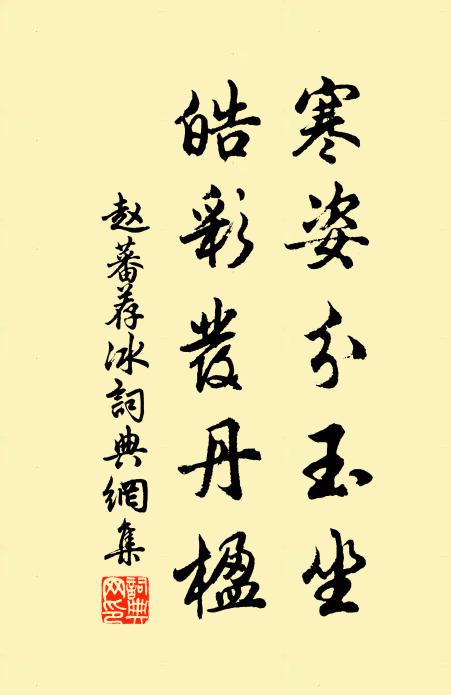 寒姿分玉坐
皓彩發丹楹
赵蕃荐冰詞典網集
詞典網印